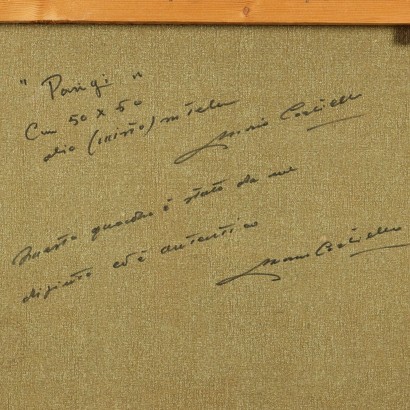 "Parigi"
Cm 50 x 50
olio (misto) su tela
Mario
Questo quadro è stato da me
dipinto ed è autentico
Mario